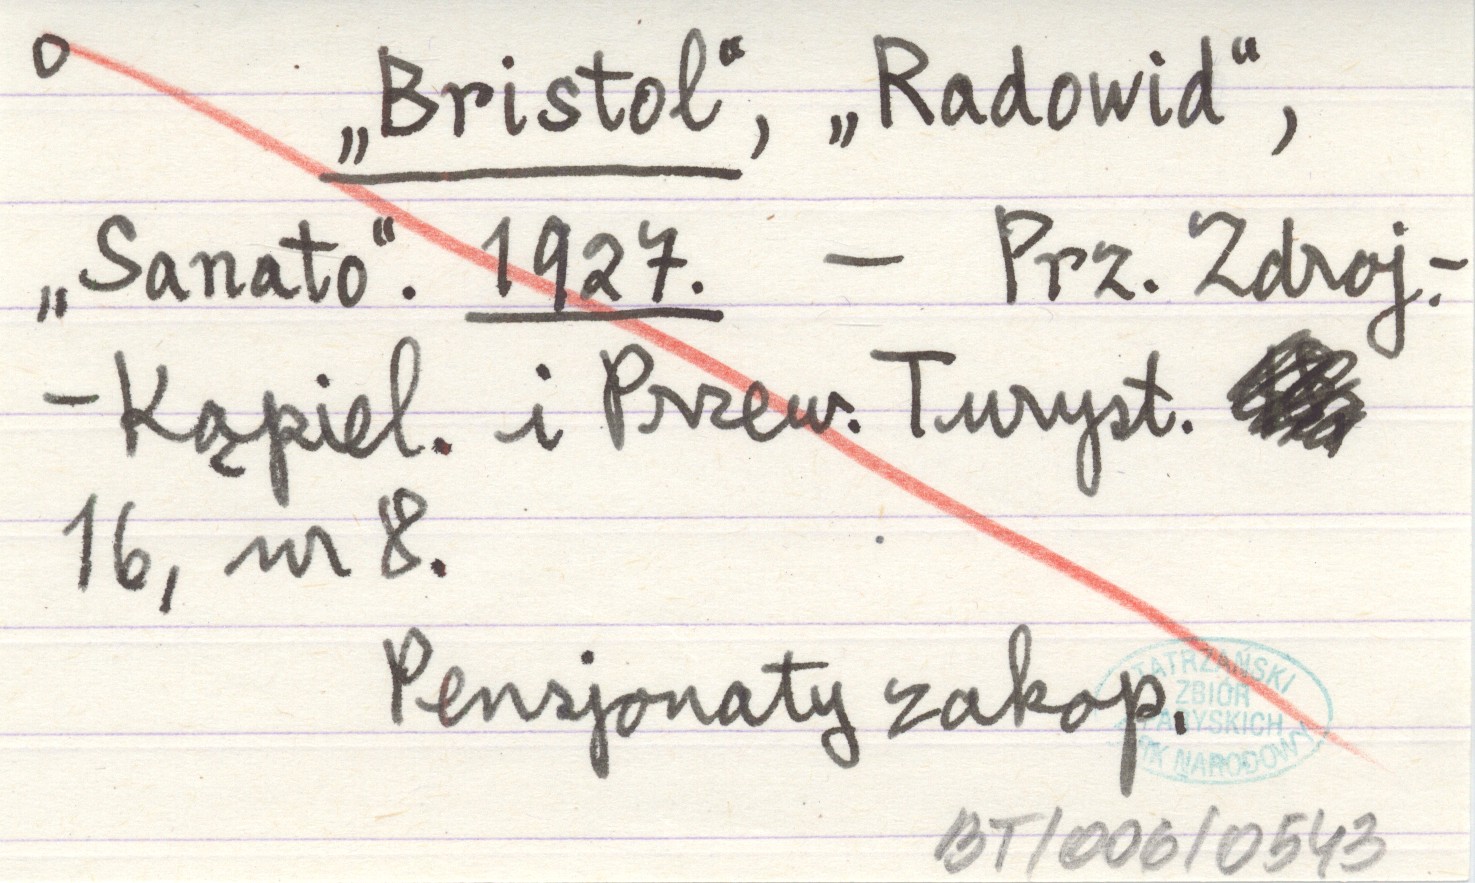 O
„Bristol“, „Radowid“,
„Sanato“. 1927. — Prz. Zdroj.-
-Kąpiel. i Przew. Turyst.
16, nr 8.
Pensjonaty zakop.
TATRZAŃSKI
ZBIÓR
PARYSKICH
NARODOWY
BT/006/0543